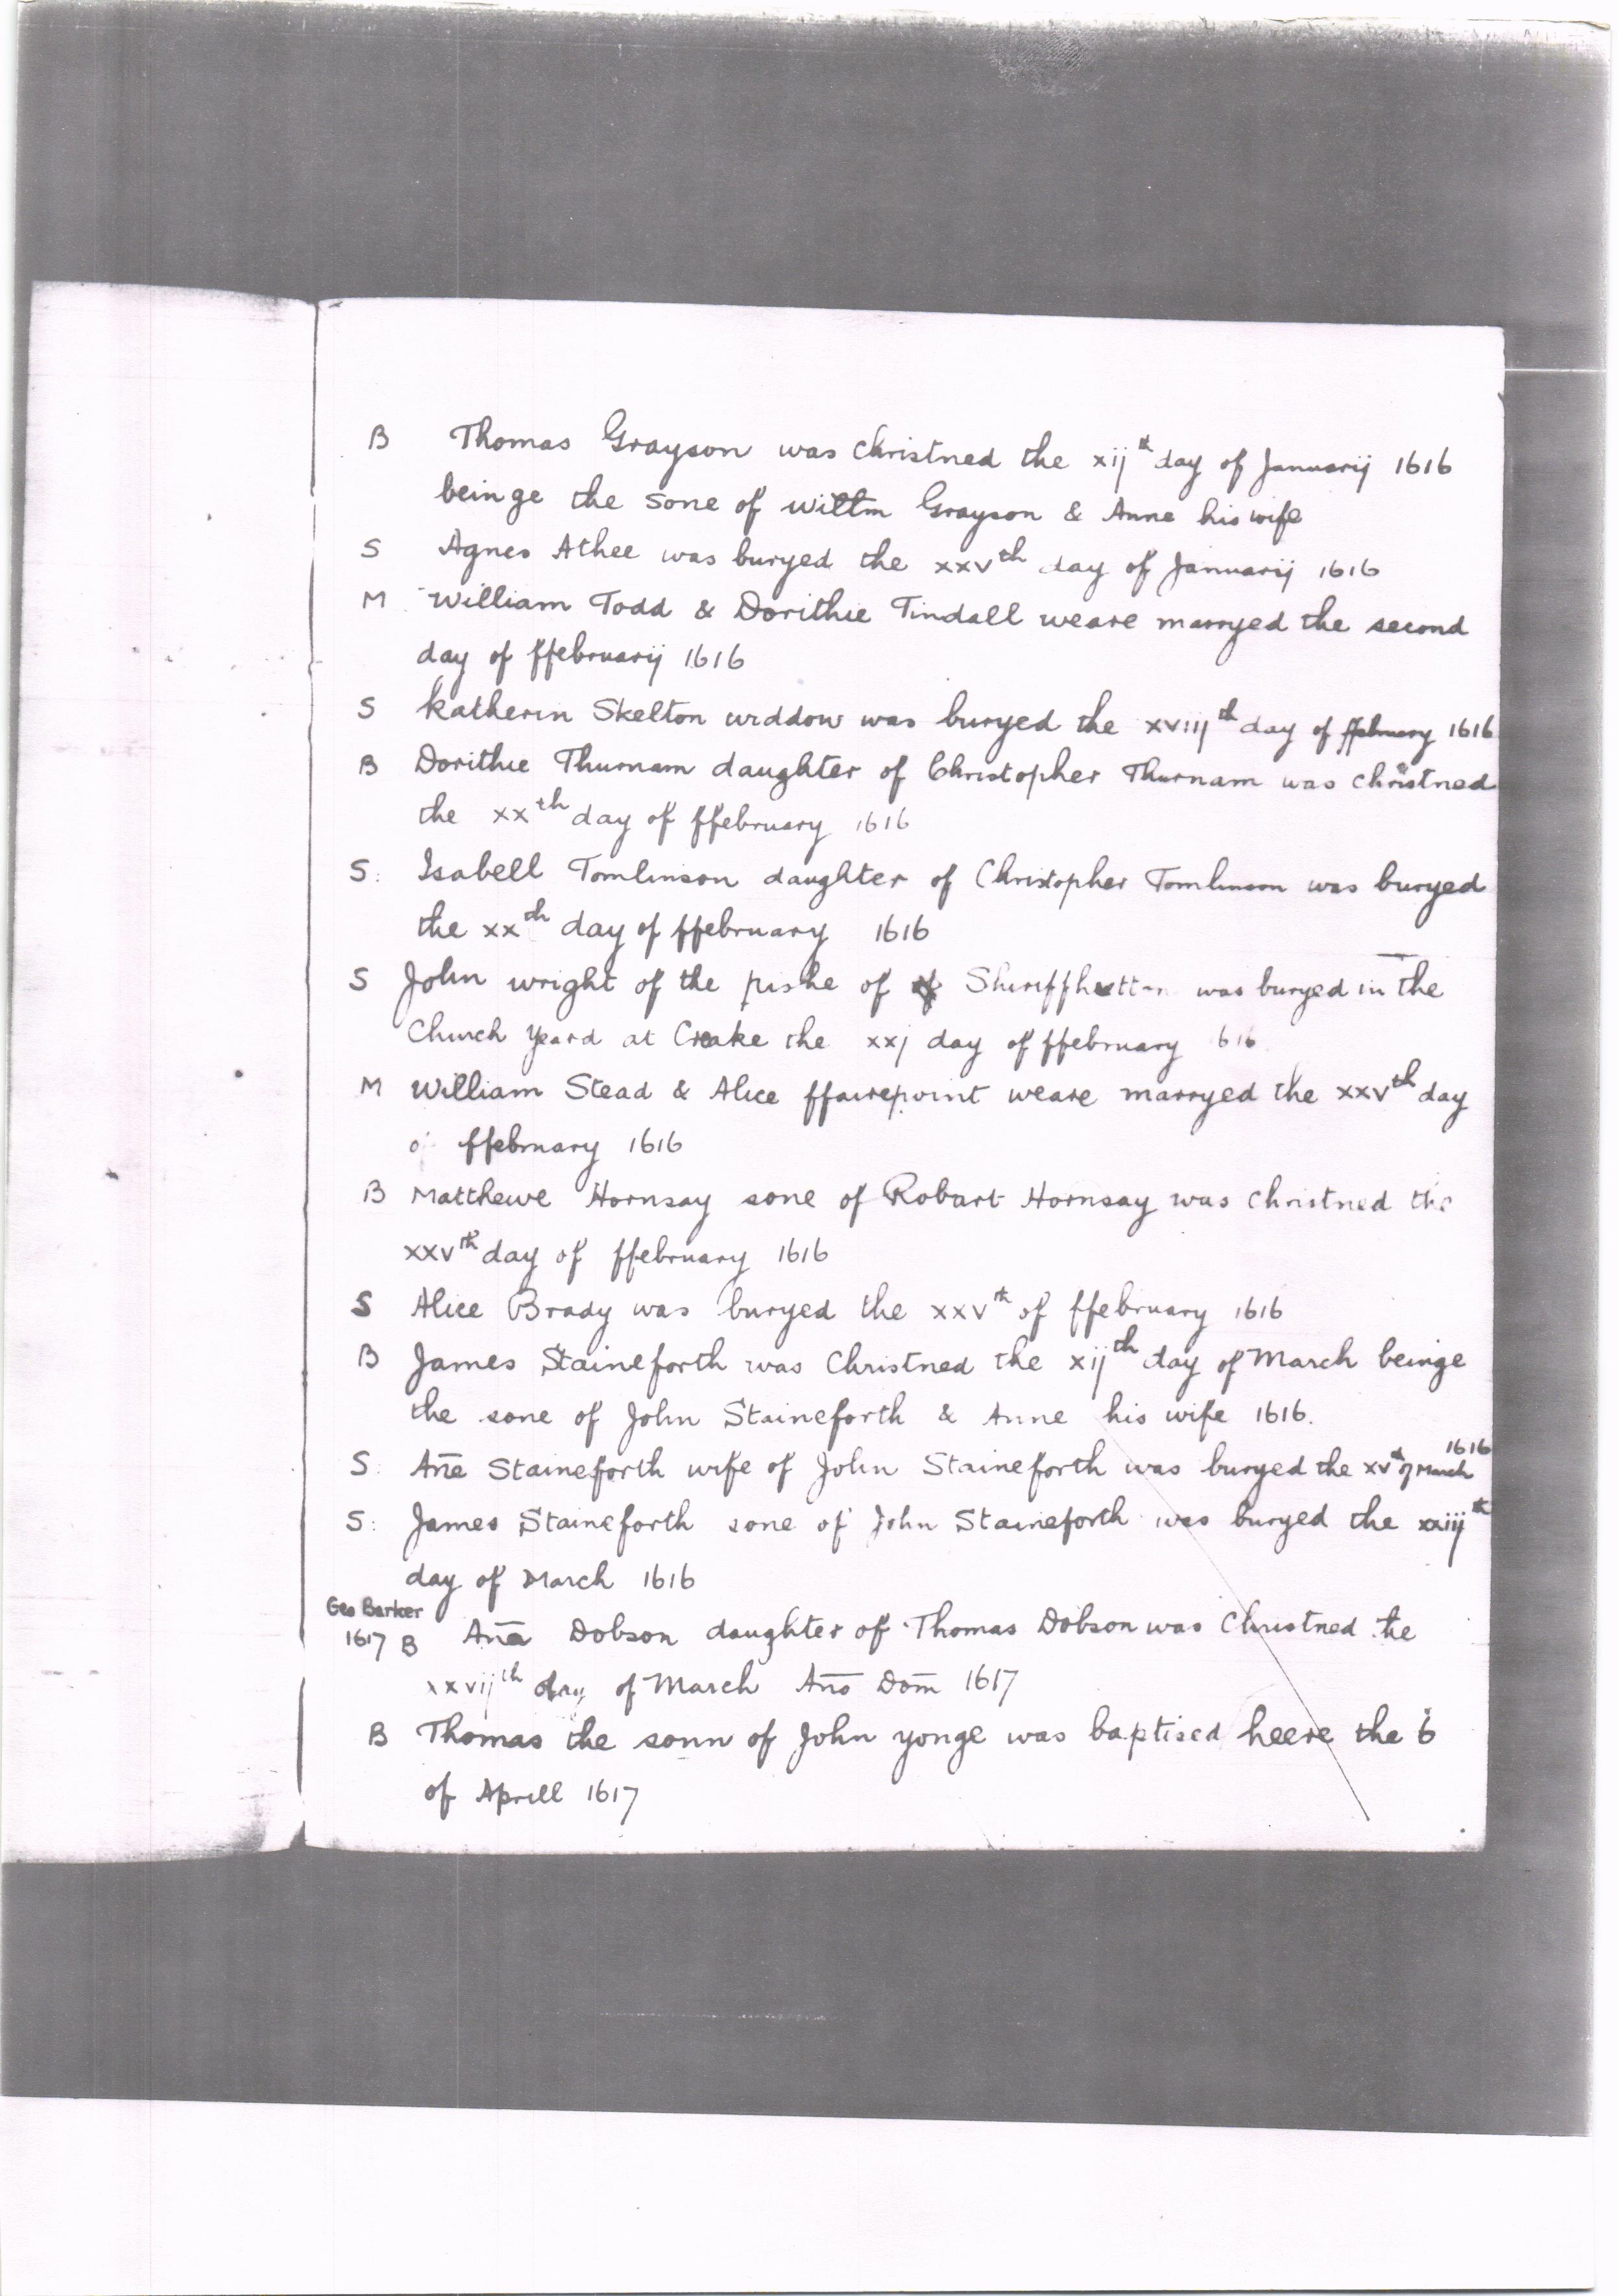 B Thomas Grayson was christned the xijth day of Januarij 1616
beinge the sone of Willm Grayson & Anne his wife
S Agnes Athee was buryed the xxvth day of Januarij 1616
M William Todd & Dorithie Tindall weare marryed the second
day of ffebruarij 1616
S Katherin Skelton widdow was buryed the xviijth day of ffebruary 1616
B Dorithie Thurnam daughter of Christopher Thurnam was christned
the xxth day of ffebruary 1616
S: Isabell Tomlinson daughter of Christopher Tomlinson was buryed
the xxth day of ffebruary 1616
S John wright of the pishe of Shiriffhutton was buryed in the
Church Yeard at Creake the xxj day of ffebruary 616
M William Stead & Alice ffairepoint weare marryed the xxvth day
o ffebruary 1616
B Matthewe Hornsay sone of Robart Hornsay was Christned the
xxvth day of ffebruary 1616
S Alice Brady was buryed the xxvth of ffebruary 1616
B James Staineforth was Christned the xijth day of March beinge
the sone of John Staineforth & Anne his wife 1616.
S: An̄e Staineforth wife of John Staineforth was buryed the xvth of March 1616
S: James Staineforth sone of John Staineforth was buryed the xxiijth
day of March 1616
Geo Barker
1617 B An̄a Dobson daughter of Thomas Dobson was Christned the
xxvijth day of March An̄o Dom̄ 1617
B Thomas the sonn of John yonge was baptised heere the 6
of Aprill 1617